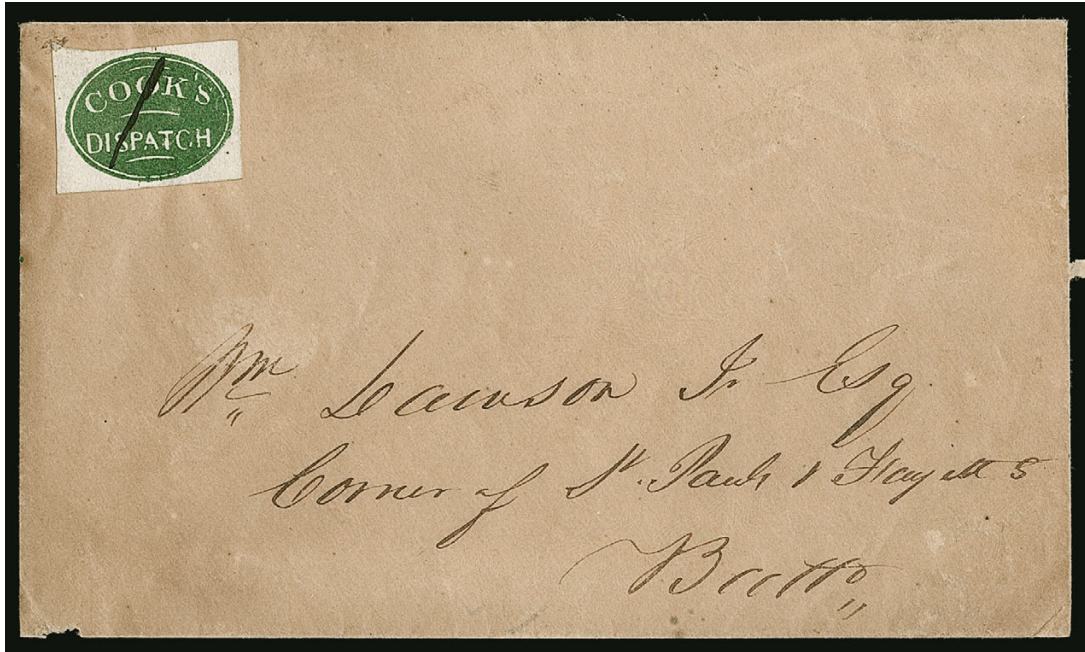 COOK'S
DISPATCH
Wm Lawson Jr Esq.
Corner of St. Pauls & Fayette S
Balto